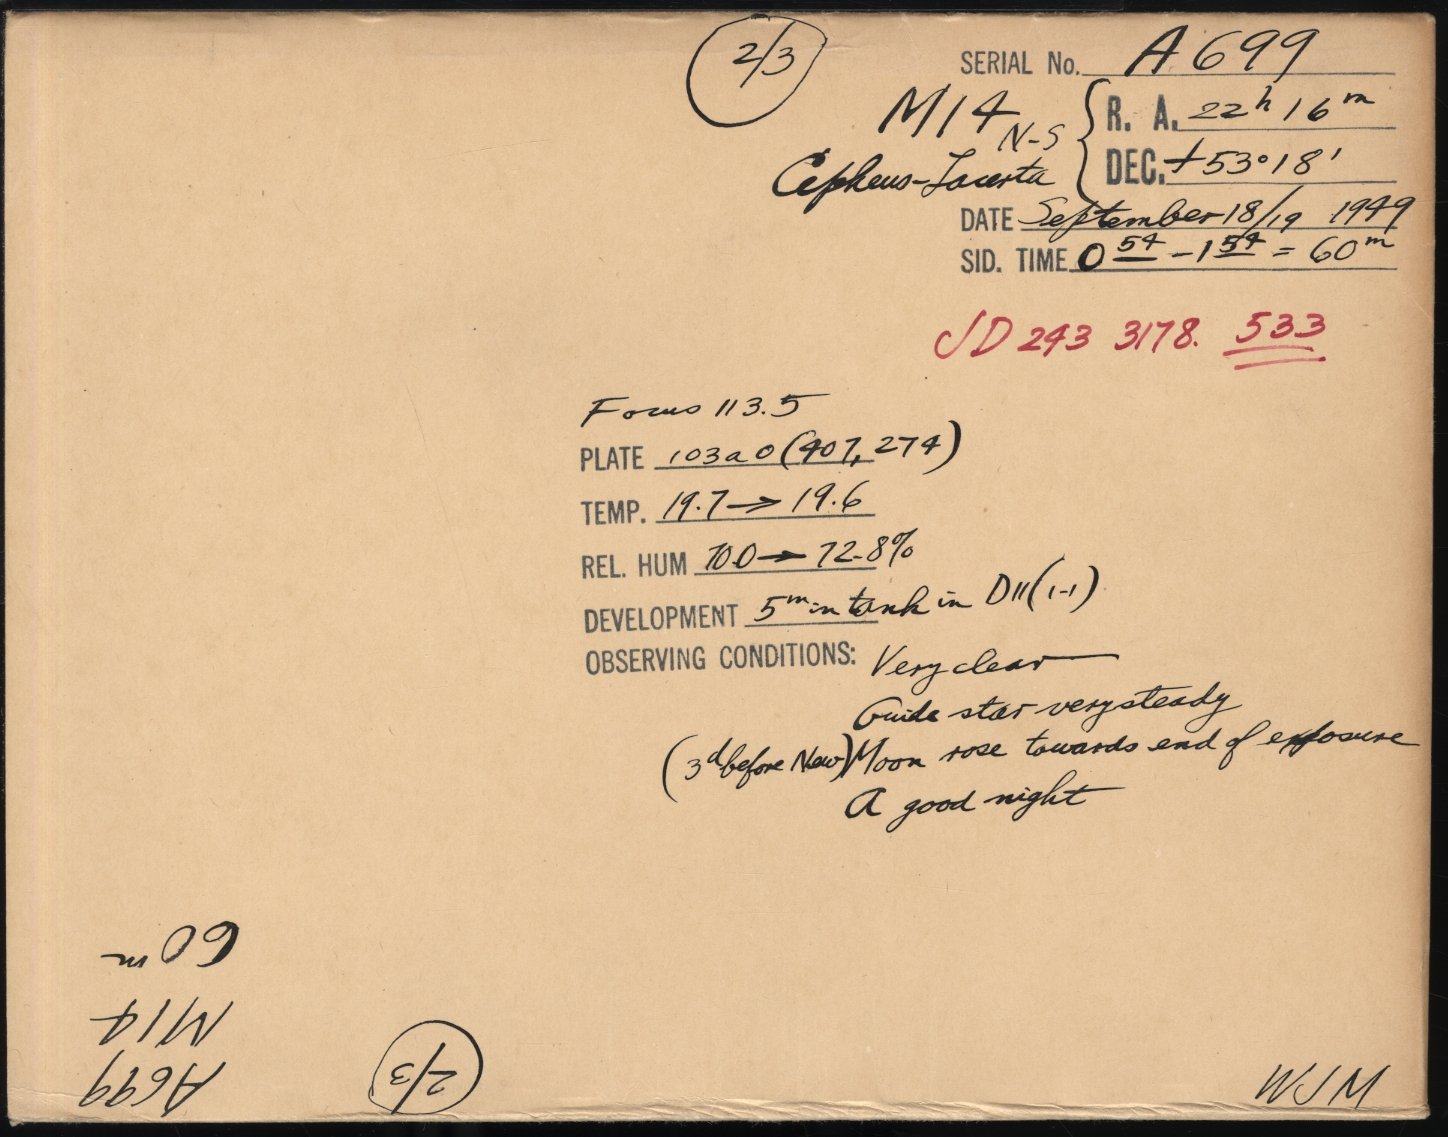 2/3
SERIAL No. A699
M14 N-S
R. A. 22h 16m
Cepheus-Lacerta
DEC. +53°18'
DATE September 18/19 1949
SID. TIME 0 54 - 1 54 = 60m
JD 243 3178. 533
Focus 113.5
PLATE 103aO (407, 274)
TEMP. 19.7 → 19.6
REL. HUM 70.0 → 72.8%
DEVELOPMENT 5m in tank in D11 (1-1)
OBSERVING CONDITIONS: Very clear
Guide star very steady
(3d before New) Moon rose towards end of exposure
A good night
60m
M14
A699
2/3
WJM